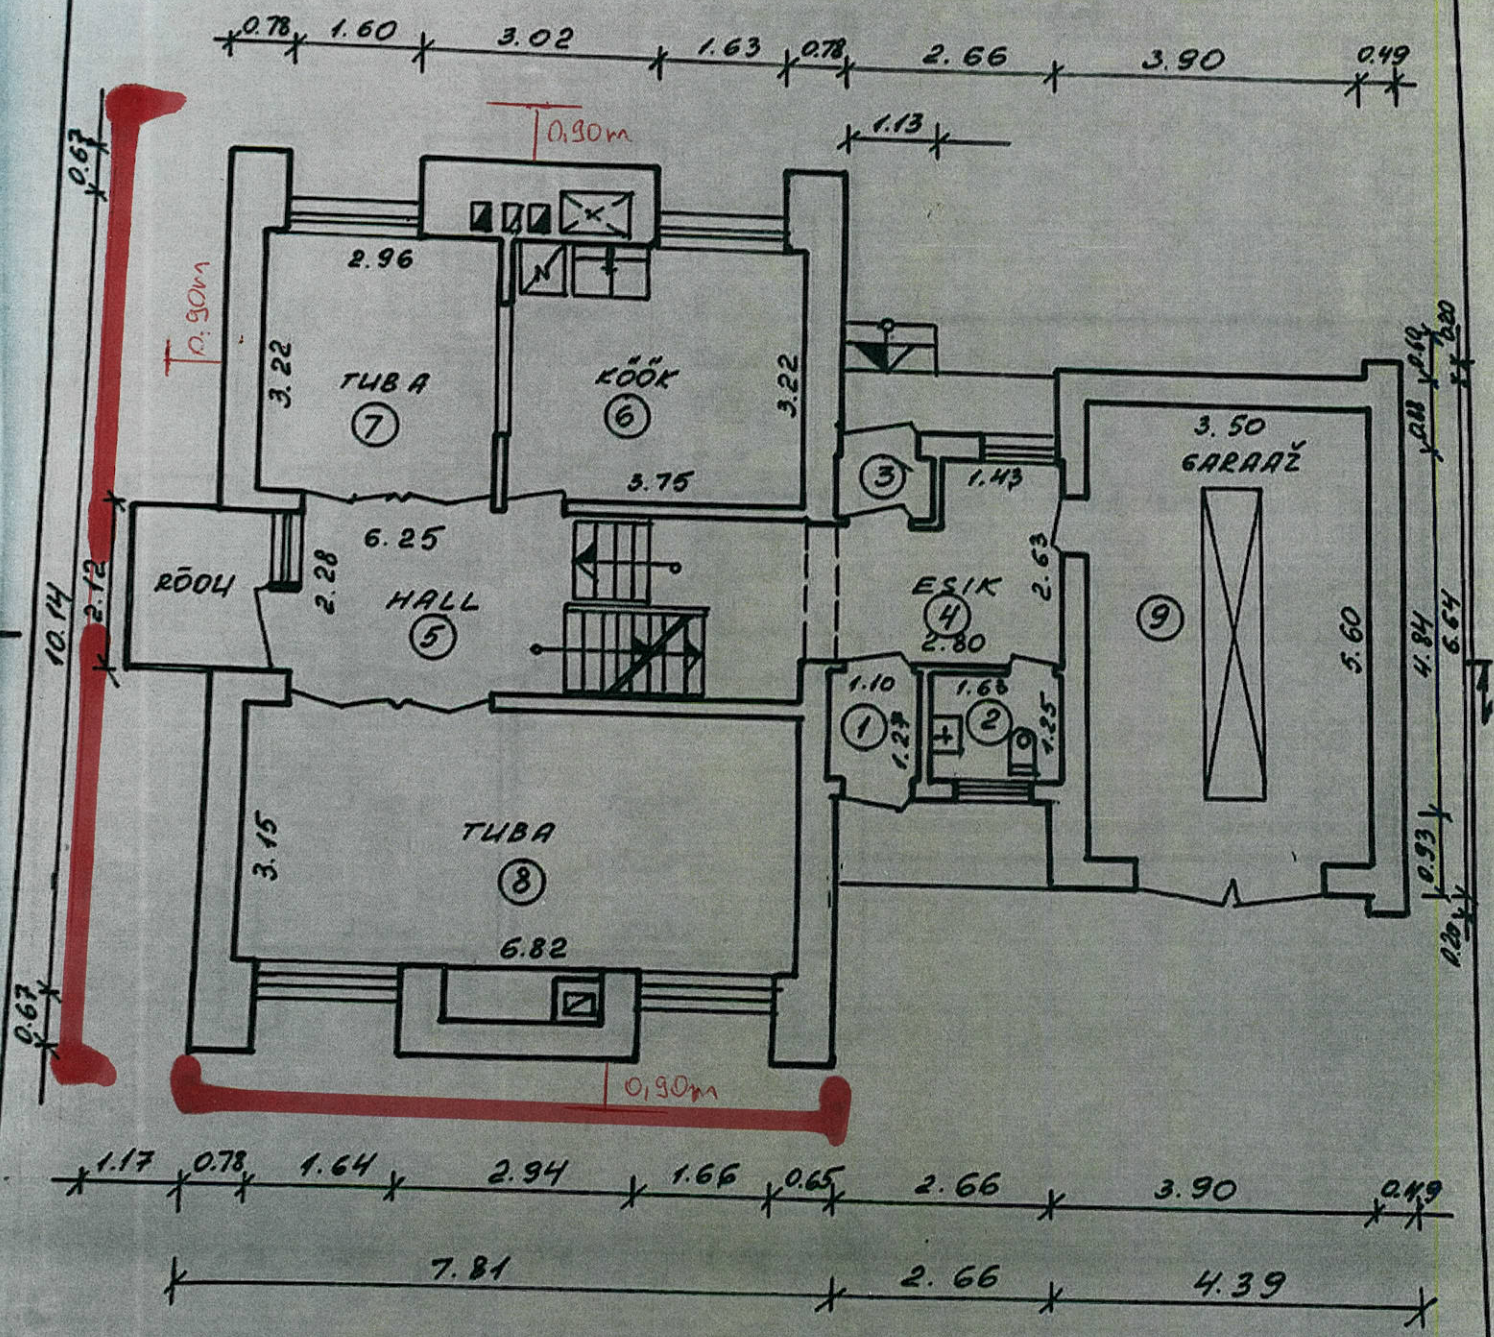 0.78 1.60 3.02 1.63 0.78 2.66 3.90 0.49
1.13
0.67
0,90m
0.90m
2.96
3.22
TUBA
7
N
KÖÖK
6
3.22
3.75
3
1.43
3.50
GARAAŽ
0.60
0.20
0.88
RÕDU
2.12
10.14
6.25
2.28
HALL
5
ESIK
4
2.80
2.63
9
5.60
4.84
6.64
1.10
1
1.27
1.68
2
1.25
TUBA
8
3.15
6.82
0.93
0.20
0.67
0,90m
1.17 0.78 1.64 2.94 1.66 0.65 2.66 3.90 0.49
7.81 2.66 4.39